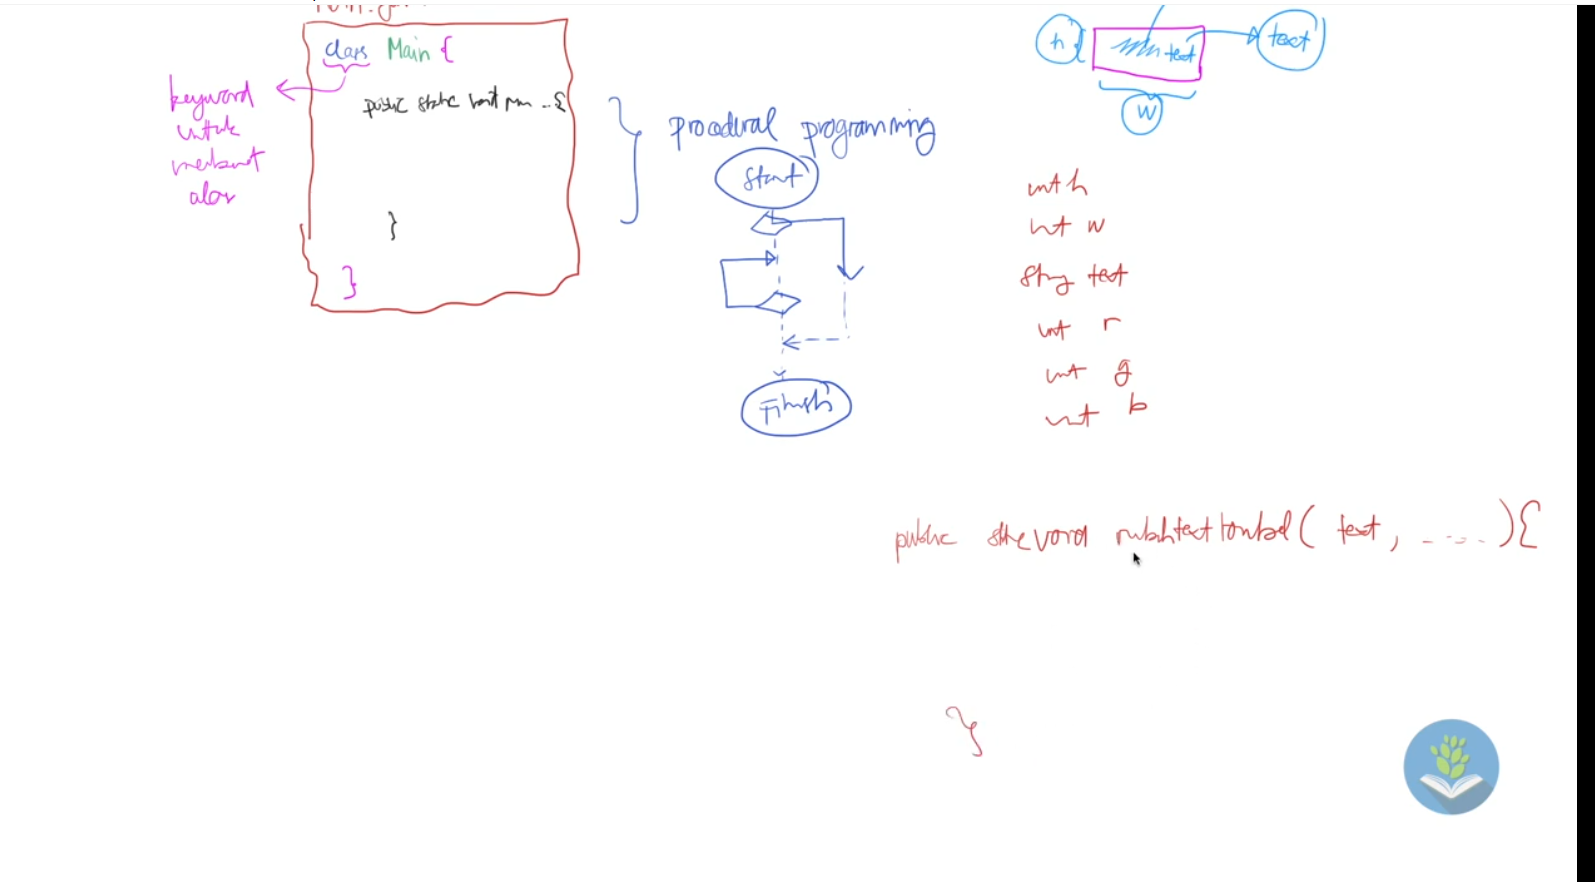 class Main {
public static void main ... {
}
}
keyword
untuk
membuat
class
} procedural programming
Start
Finish
h
text
text
w
int h
int w
String text
int r
int g
int b
public static void rubahtexttombol( text, ..... ) {
}